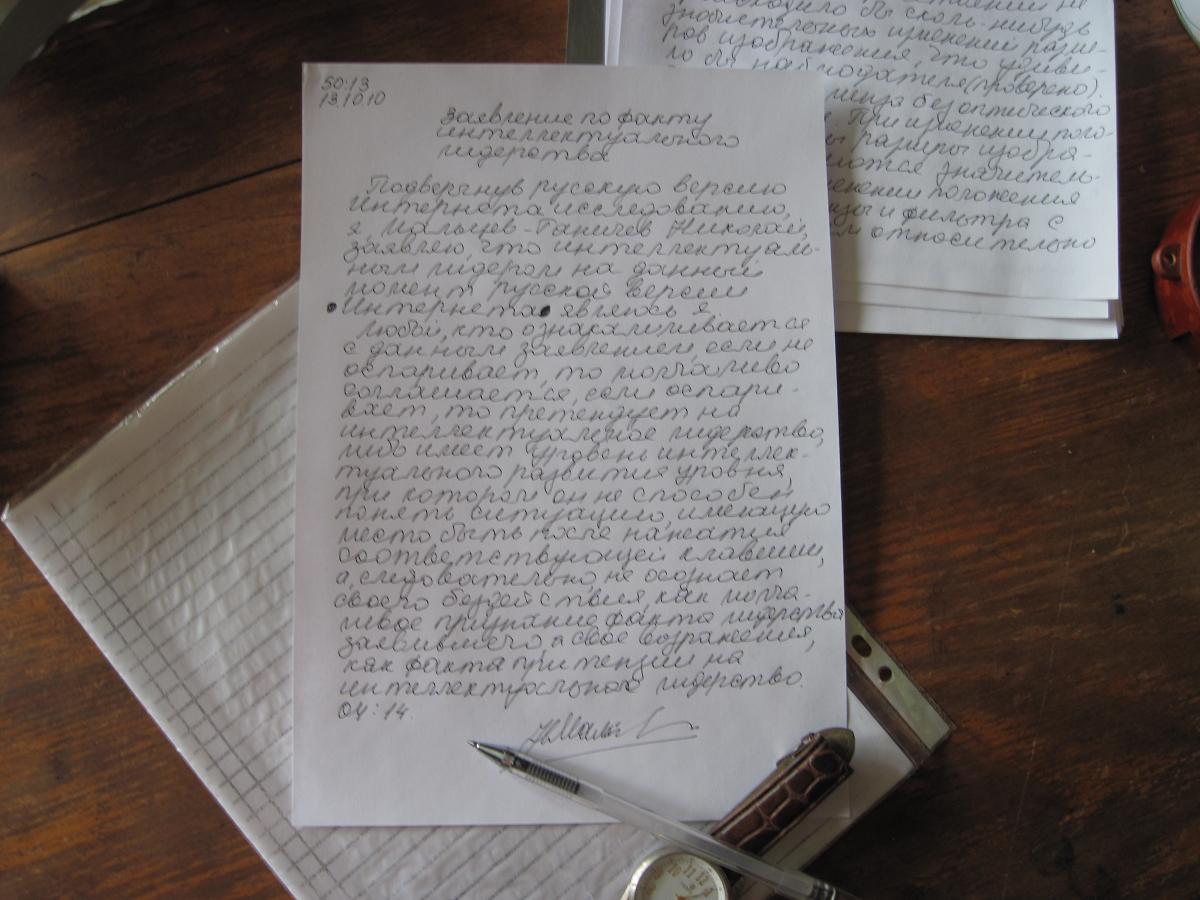 50:13
13.10.10
Заявление по факту
интеллектуального
лидерства
Подвергнув русскую версию
Интернета исследованию,
я, Мальцев-Ганичев Николай,
заявляю, что интеллектуаль-
ным лидером на данный
момент русской версии
Интернета являюсь я.
Любой, кто ознакамливается
с данным заявлением, если не
оспаривает, то молчаливо
соглашается, если оспари-
вает, то претендует на
интеллектуальное лидерство,
либо имеет уровень интеллек-
туального развития уровня,
при котором он не способен
понять ситуацию, имеющую
место быть после нажатия
соответствующей клавиши,
а, следовательно, не осознает
своего бездействия, как молча-
ливое признание факта лидерства
заявившего, а свое возражения,
как факта притензии на
интеллектуальное лидерство.
04:14.
значительных изменений разме-
ров изображения, что удиви-
ло бы наблюдателя (проверено).
линза без оптического
При изменении поло-
ы размеры изобра-
яются значитель-
енении положения
зы и фильтра с
ем относительно
10 11 12